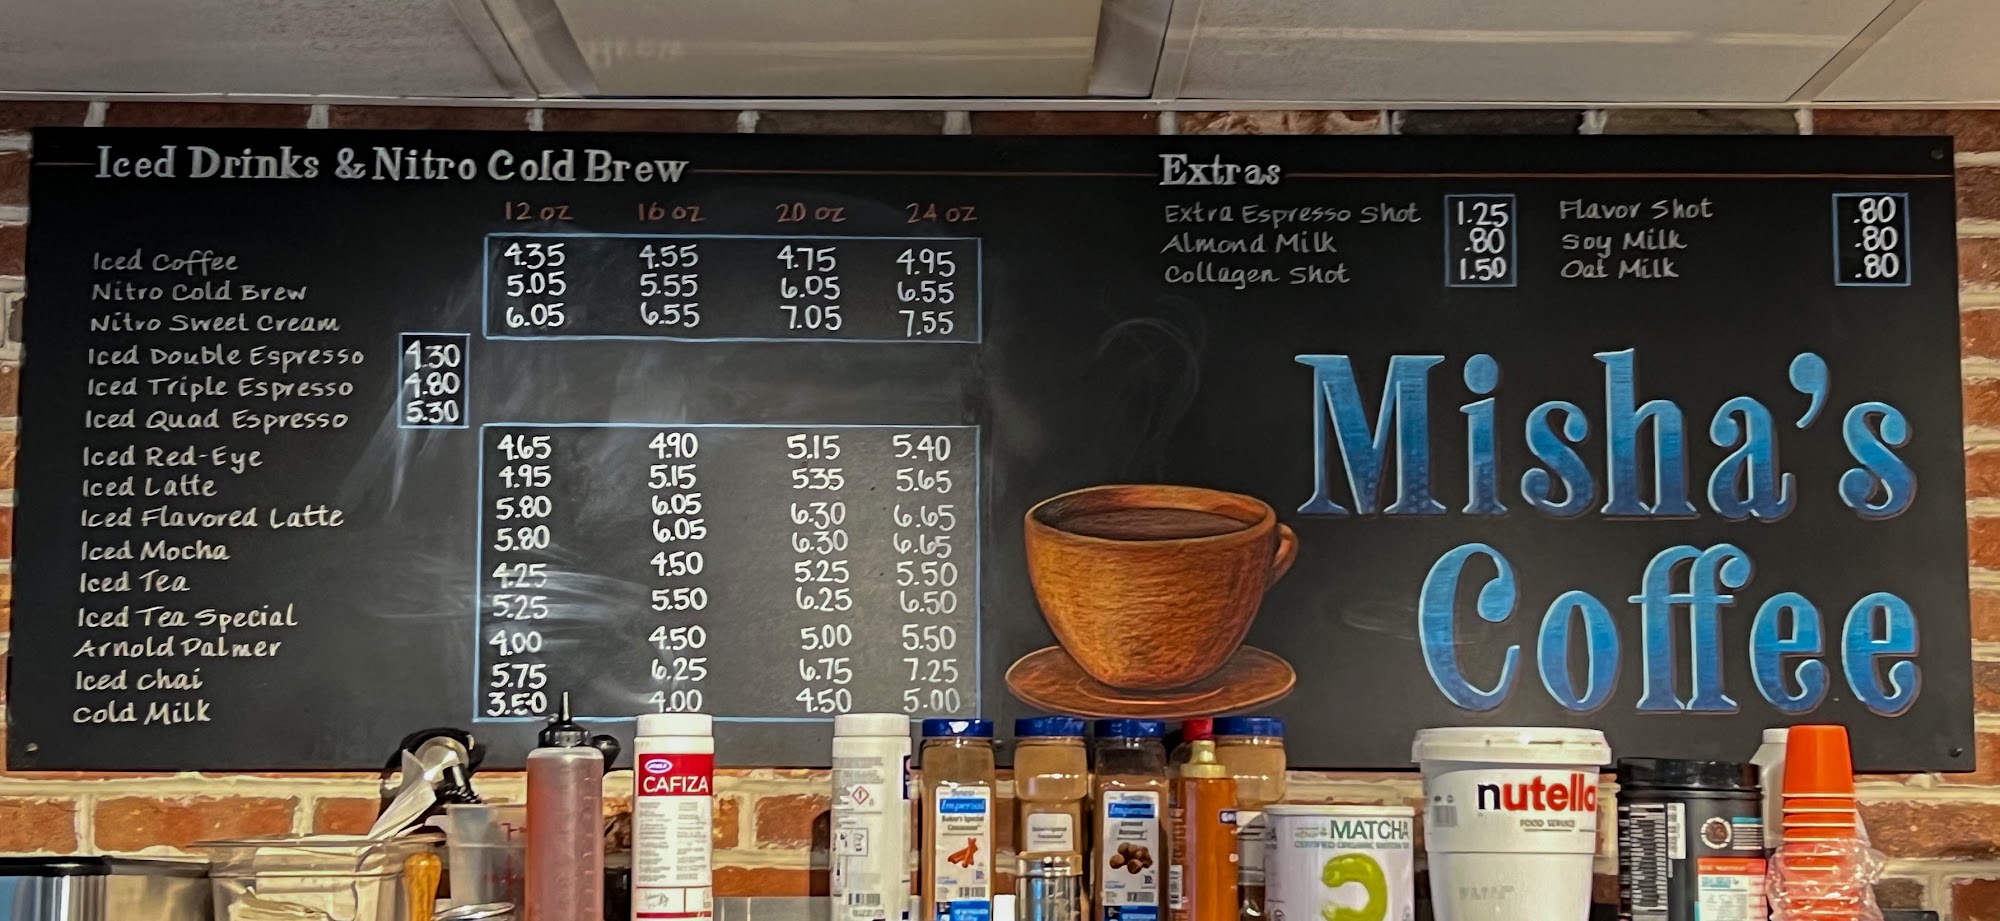 Iced Drinks & Nitro Cold Brew
12 oz 16 oz 20 oz 24 oz
Iced Coffee 4.35 4.55 4.75 4.95
Nitro Cold Brew 5.05 5.55 6.05 6.55
Nitro Sweet Cream 6.05 6.55 7.05 7.55
Iced Double Espresso 4.30
Iced Triple Espresso 4.80
Iced Quad Espresso 5.30
Iced Red-Eye 4.65 4.90 5.15 5.40
Iced Latte 4.95 5.15 5.35 5.65
Iced Flavored Latte 5.80 6.05 6.30 6.65
Iced Mocha 5.80 6.05 6.30 6.65
Iced Tea 4.25 4.50 5.25 5.50
Iced Tea Special 5.25 5.50 6.25 6.50
Arnold Palmer 4.00 4.50 5.00 5.50
Iced Chai 5.75 6.25 6.75 7.25
Cold Milk 3.50 4.00 4.50 5.00
Extras
Extra Espresso Shot 1.25 Flavor Shot .80
Almond Milk .80 Soy Milk .80
Collagen Shot 1.50 Oat Milk .80
Misha's
Coffee
CAFIZA
Imperial
Imperial
MATCHA
nutella
FOOD SERVICE